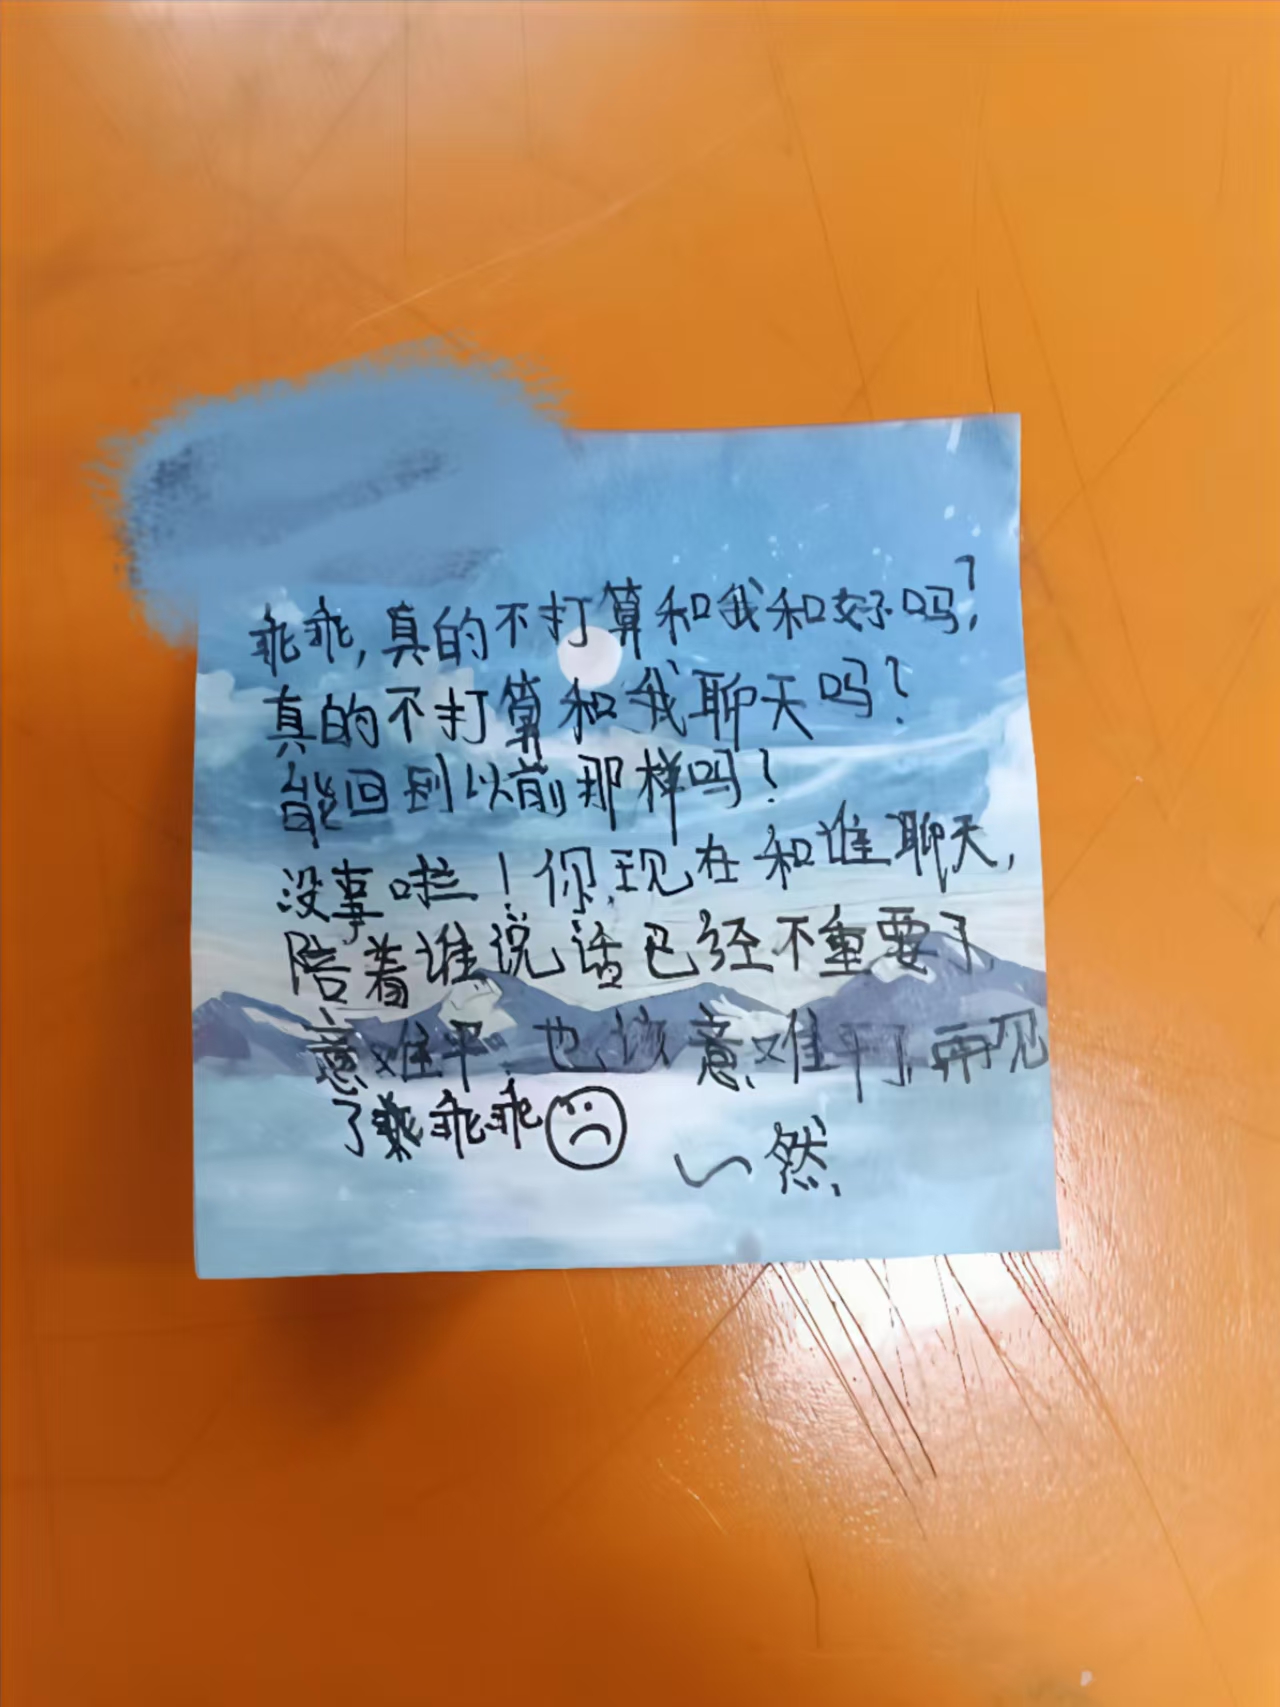 乖乖,真的不打算和我和好吗?
真的不打算和我聊天吗?
能回到以前那样吗?
没事啦!你现在和谁聊天,
陪着谁说话已经不重要了
意难平,也该意难平,再见
了乖乖
～然